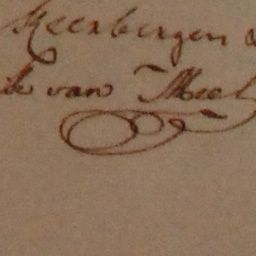 Keerbergen
van Meel